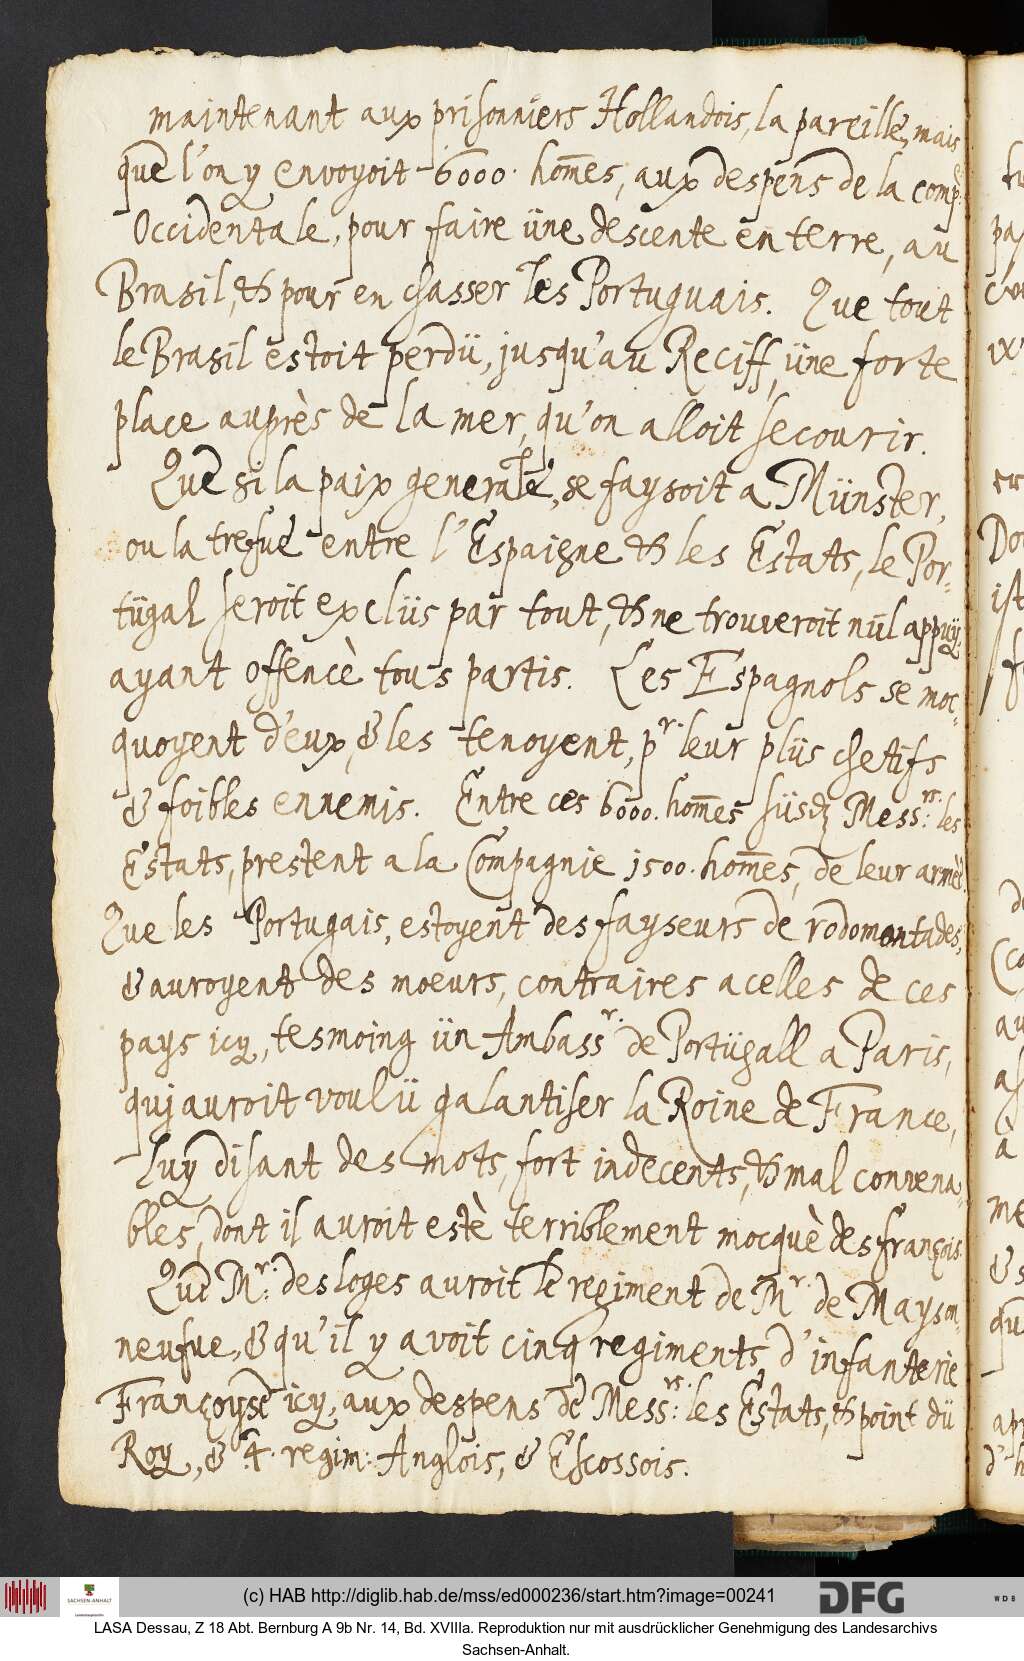 maintenant aux prisonniers Hollandois, la pareille, mais
que l'on y envoyoit 6000. hom̄es, aux despens de la comp:
Occidentale, pour faire üne descente en terre, au
Brasil, & pour en chasser les Portuguais. Que tout
le Brasil estoit perdü, jusqu'au Reciff, üne forte
place auprès de la mer, qu'on alloit secourir.
Que si la paix generale, se faysoit a Münster,
ou la trefue entre l'Espaigne & les Estats, le Por-
tügal seroit exclüs par tout, & ne trouveroit nül appuÿ,
ayant offencè tous partis. Les Espagnols se moc-
quoyent d'eux, & les tenoyent, pr. leur plüs chetifs
& foibles ennemis. Entre ces 6000. hom̄es süsd. Messrs: les
Estats, prestent a la Compagnie 1500. hom̄es, de leur armèe.
Que les Portugais, estoyent des fayseurs de rodomontades,
& auroyent des moeurs, contraires a celles de ces
pays icy, tesmoing ün Ambassr. de Portügall a Paris,
quj auroit voulü galantiser la Roine de France,
luy disant des mots, fort indecents, & mal convena-
bles, dont il auroit estè terriblement mocquè des françois.
Que Mr: des loges auroit le regiment de Mr. de Mayson-
neufue, & qu'il y avoit cinq regiments d'infanterie
Françoyse icy, aux despens de Messrs: les Estats, & point dü
Roy, & 4. regim: Anglois, & Escossois.
(c) HAB http://diglib.hab.de/mss/ed000236/start.htm?image=00241
SACHSEN-ANHALT
DFG
WDB
LASA Dessau, Z 18 Abt. Bernburg A 9b Nr. 14, Bd. XVIIIa. Reproduktion nur mit ausdrücklicher Genehmigung des Landesarchivs
Sachsen-Anhalt.